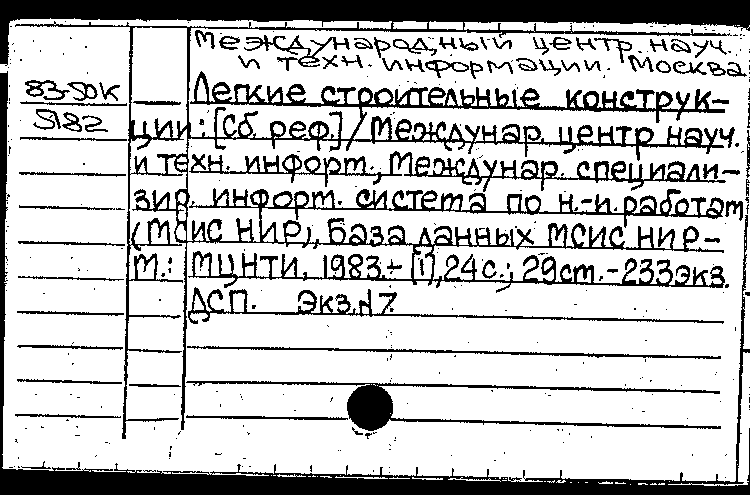 Международный центр науч.
и техн. информации. Москва
83-50К
5182
Легкие строительные конструк-
ции: [Сб. реф.] / Междунар. центр науч.
и техн. информ., Междунар. специали-
зир. информ. система по н.-и. работам
(МСИС НИР), База данных МСИС НИР. -
М.: МЦНТИ, 1983. - [1], 24 с.; 29 см. - 233 экз.
ДСП. Экз. N 7.